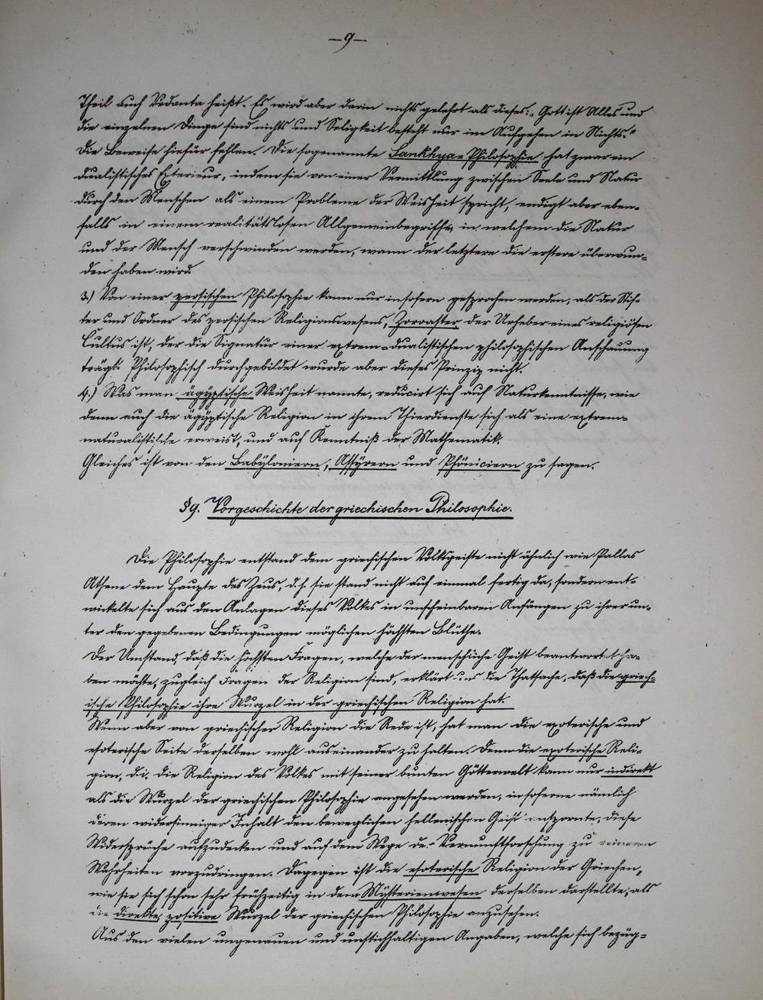 —9—
Theil auch Vedanta heißt. Es wird aber darin nichts gelehrt als dieses: „Gott ist Alles und
die einzelnen Dinge sind nichts und Seligkeit besteht nur im Aufgehen in Nichts."
Die Beweise hiefür fehlen. Die sogenannte Sankhya-Philosophie hat zwar ein
dualistisches Exterieur, indem sie von einer Vermittlung zwischen Seele und Natur
durch den Menschen als einem Probleme der Weisheit spricht, endigt aber eben-
falls in einem realitätslosen Allgemeinbegriffe, in welchem die Natur
und der Mensch verschwinden werden, wann der letztere die erstere überwun-
den haben wird
3.) Von einer persischen Philosophie kann nur insofern gesprochen werden, als der Stif-
ter und Ordner des persischen Religionswesens, Zoroaster der Urheber eines religiösen
Cultus ist, der die Signatur einer extrem-dualistischen philosophischen Anschauung
trägt. Philosophisch durchgebildet wurde aber dieses Prinzip nicht.
4.) Was man ägyptische Weisheit nannte, reducirt sich auf Naturkenntnisse, wie
denn auch die ägyptische Religion in ihrem Thierdienste sich als eine extrem-
naturalistische erweist, und auf Kenntniß der Mathematik.
Gleiches ist von den Babyloniern, Assyrern und Phöniciern zu sagen.
§9. Vorgeschichte der griechischen Philosophie.
Die Philosophie entstand dem griechischen Volksgeiste nicht ähnlich wie Pallas
Athene dem Haupte des Zeus, d.h. sie stand nicht auf einmal fertig da, sondern ent-
wickelte sich aus den Anlagen dieses Volkes in unscheinbaren Anfängen zu ihrer un-
ter den gegebenen Bedingungen möglichen höchsten Blüthe.
Der Umstand, daß die höchsten Fragen, welche der menschliche Geist beantwortet ha-
ben möchte, zugleich Fragen der Religion sind, erklärt uns die Thatsache, daß die griech-
ische Philosophie ihre Wurzel in der griechischen Religion hat.
Wenn aber von griechischer Religion die Rede ist, hat man die exoterische und
esoterische Seite derselben wohl auseinander zu halten. Denn die exoterische Reli-
gion, d.i. die Religion des Volkes mit seiner bunten Götterwelt kann nur indirekt
als die Wurzel der griechischen Philosophie angesehen werden, insoferne nämlich
deren widersinniger Inhalt den beweglichen hellenischen Geist anspornte, diese
Widersprüche aufzudecken und auf dem Wege der Vernunftforschung zu reineren
Wahrheiten vorzudringen. Dagegen ist die esoterische Religion der Griechen,
wie sie sich schon sehr frühzeitig in dem Mysterienwesen derselben darstellte, als
die direkte, positive Wurzel der griechischen Philosophie anzusehen.
Aus den vielen ungenauen und unstichhaltigen Angaben, welche sich bezüg=